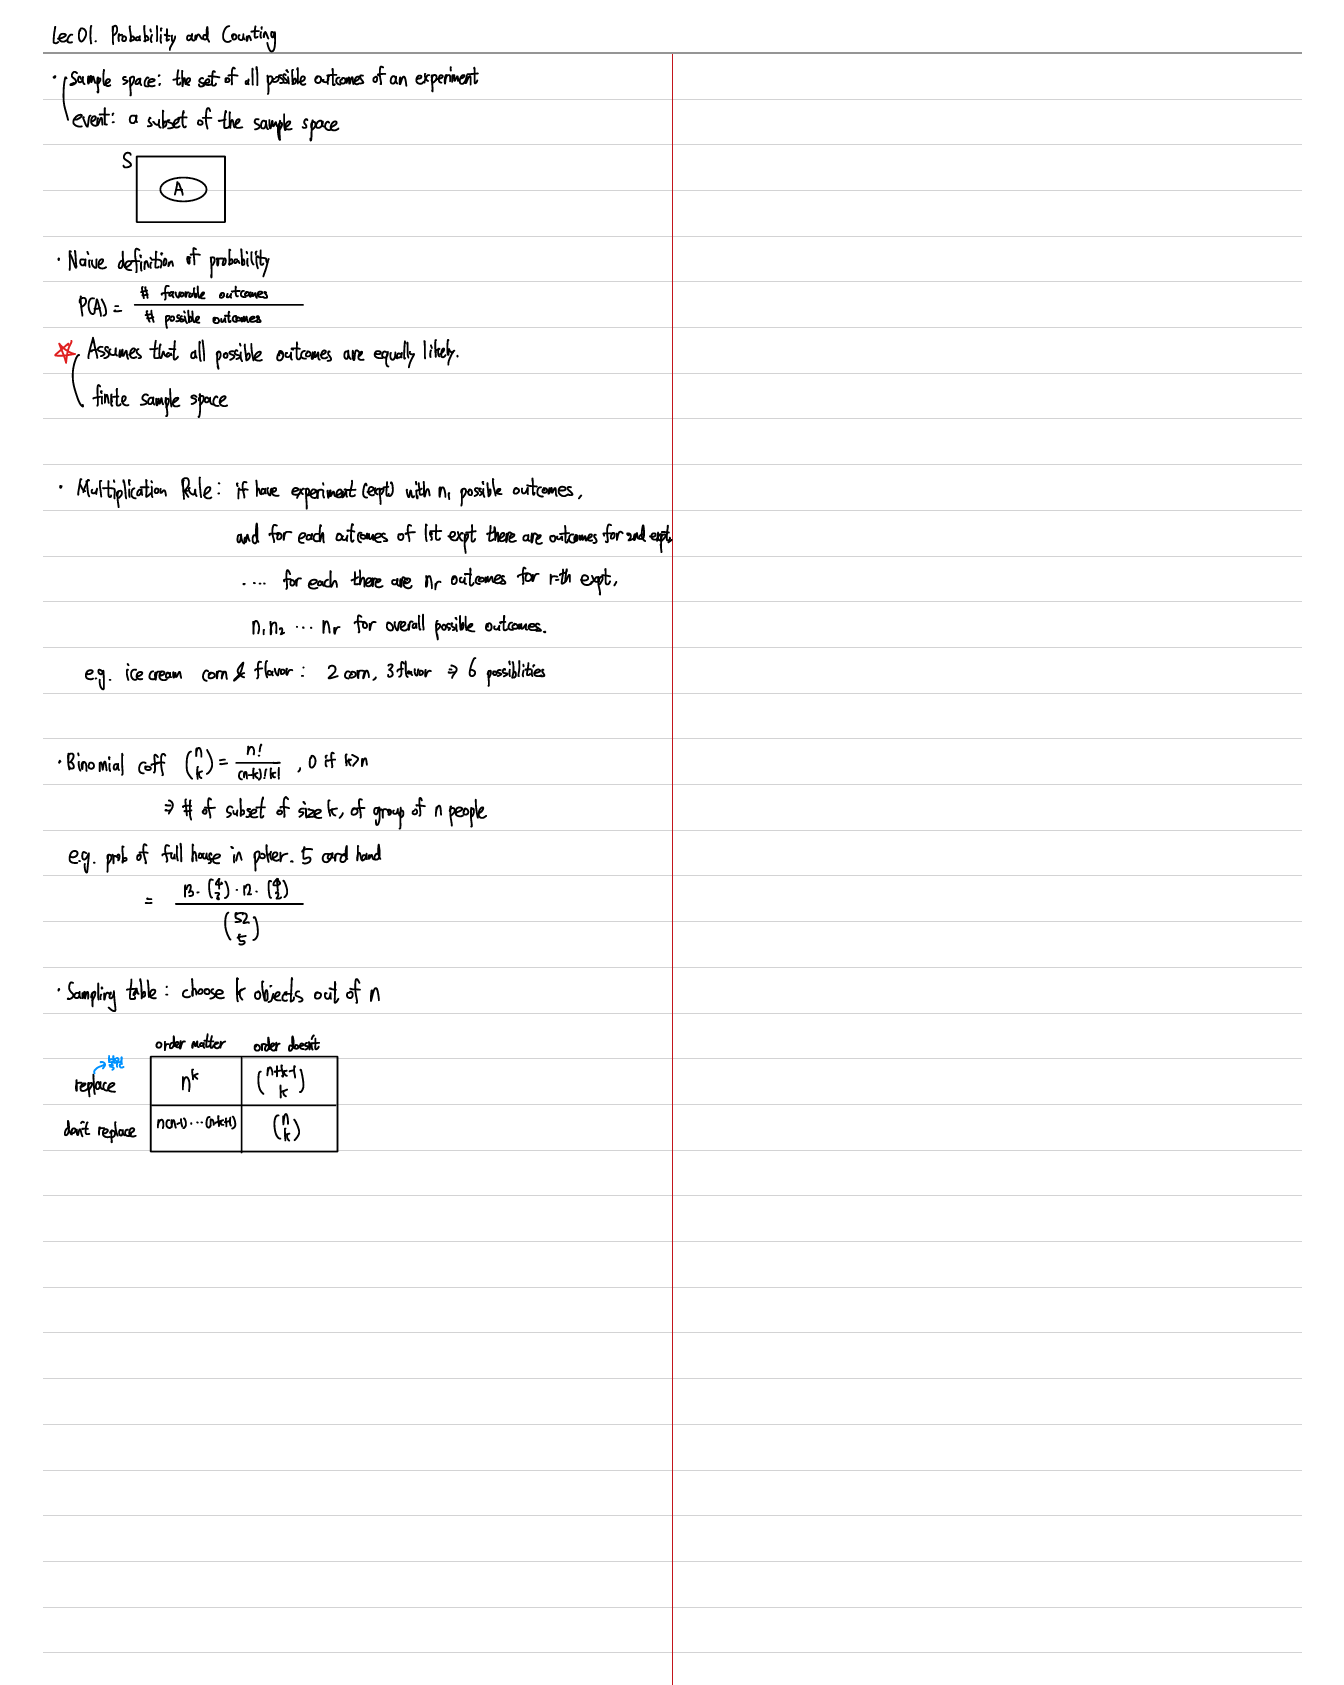 Lec 01. Probability and Counting
· Sample space: the set of all possible outcomes of an experiment
event: a subset of the sample space
S
A
· Naive definition of probability
P(A) = # favorable outcomes / # possible outcomes
☆ Assumes that all possible outcomes are equally likely.
finite sample space
· Multiplication Rule: if have experiment (expt) with n₁ possible outcomes,
and for each outcomes of 1st expt there are outcomes for 2nd expt.
.... for each there are nᵣ outcomes for r-th expt,
n₁n₂ ... nᵣ for overall possible outcomes.
e.g. ice cream corn & flavor : 2 corn, 3 flavor ⇒ 6 possiblities
· Binomial coff (n k) = n! / (n-k)! k! , 0 if k>n
⇒ # of subset of size k, of group of n people
e.g. prob of full house in poker. 5 card hand
= 13· (4 3) · 12 · (4 2) / (52 5)
· Sampling table : choose k objects out of n
order matter order doesn't
replace nᵏ (n+k-1 k)
don't replace n(n-1)···(n-k+1) (n k)